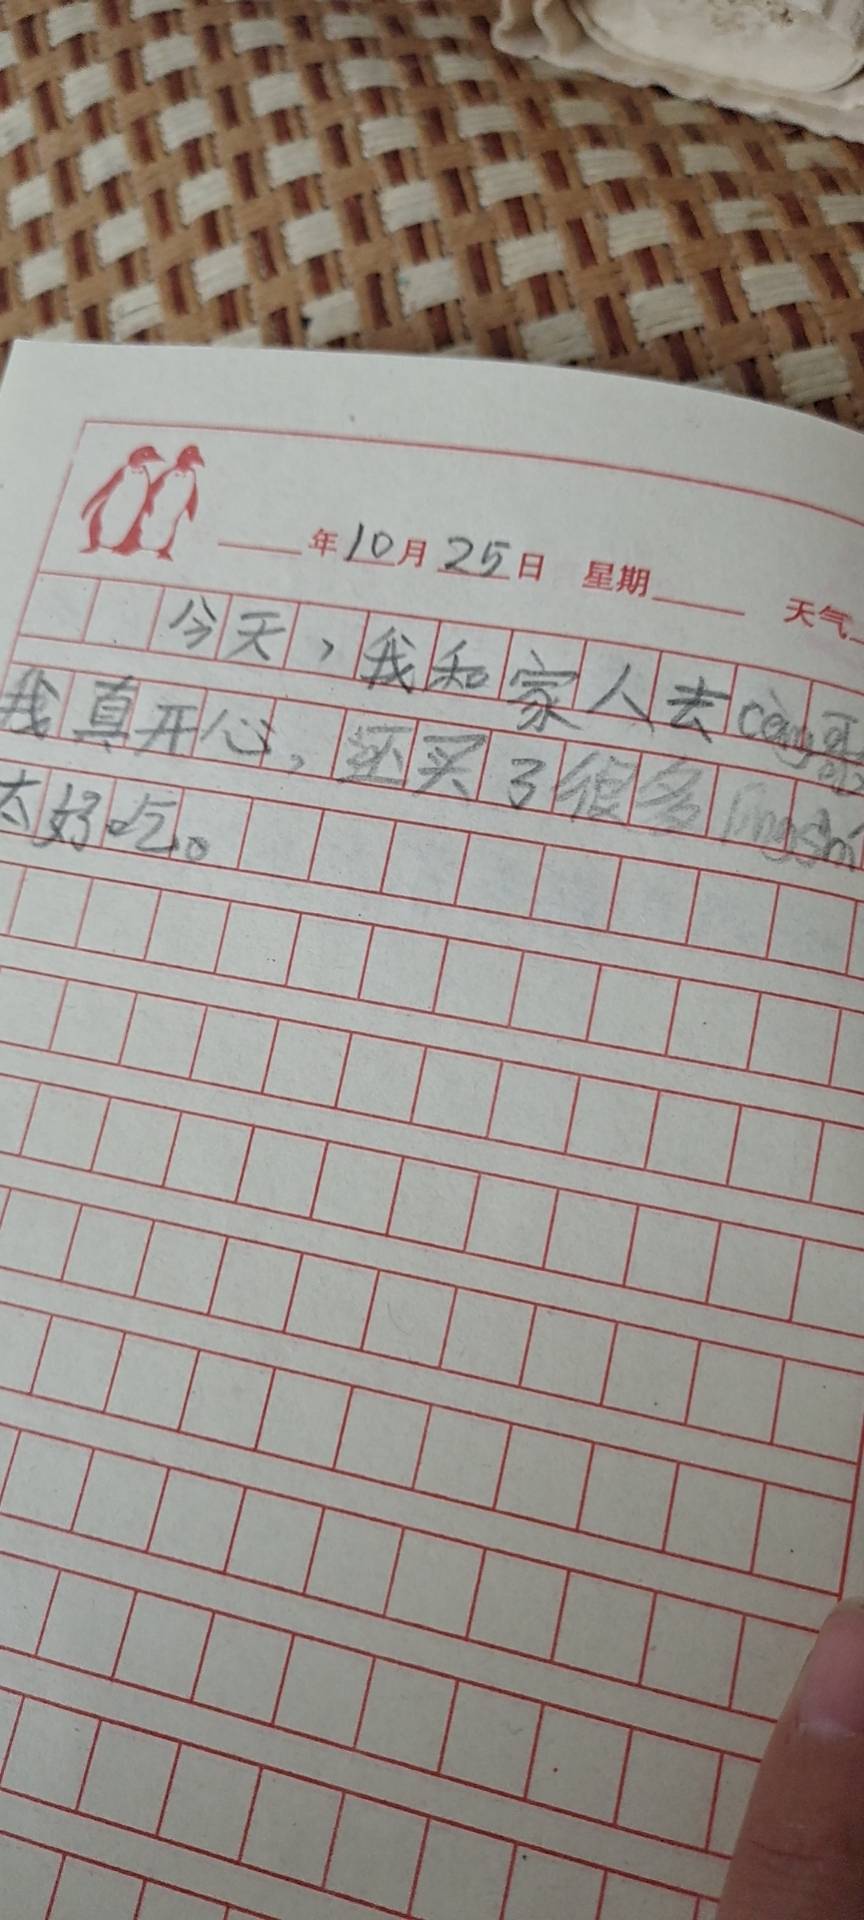 年10月25日 星期 天气
今天，我和家人去càng哥
我真开心，还买了很多língshí
太好吃。